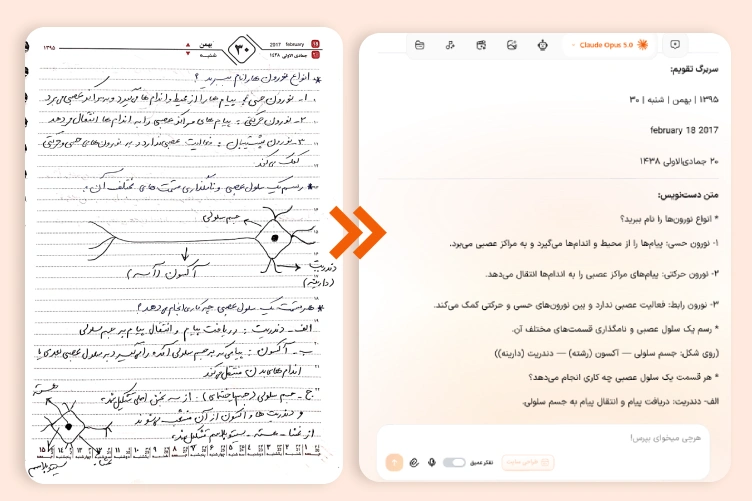 ۱۳۹۵
بهمن
شنبه
۳۰
2017 february 18
۱۴۳۸ جمادی الاولی ۲۰
* انواع نورون ها را نام ببرید ؟
۱- نورون حسی : پیام ها را از محیط و اندام ها می‌گیرد و به مراکز عصبی می برد
۲- نورون حرکتی : پیام های مراکز عصبی را به اندام ها انتقال می دهد
۳- نورون پشتیبان : فعالیت عصبی ندارد و به نورون های حسی و حرکتی
کمک می کند
* رسم یک سلول عصبی و نامگذاری قسمت های مختلف آن :
جسم سلولی
دندریت
آکسون (آسه)
(دارینه)
* هر قسمت یک سلول عصبی چه کاری انجام می دهد؟
الف - دندریت : دریافت پیام و انتقال پیام به جسم سلولی
ب - آکسون : پیامی که به جسم سلولی آمده را می‌گیرد و به سلول عصبی بعدی یا
اندام های بدن منتقل می کند
ج - جسم سلولی : از سه بخش اصلی تشکیل شده
و دندریت ها و آکسون از آن منشعب می شوند
از غشا - هسته - سیتوپلاسم تشکیل شده
هسته
غشا
سیتوپلاسم
Claude Opus 5.0
سربرگ تقویم:
۱۳۹۵ | بهمن | شنبه | ۳۰
february 18 2017
۲۰ جمادی‌الاولی ۱۴۳۸
متن دست‌نویس:
* انواع نورون‌ها را نام ببرید؟
۱- نورون حسی: پیام‌ها را از محیط و اندام‌ها می‌گیرد و به مراکز عصبی می‌برد.
۲- نورون حرکتی: پیام‌های مراکز عصبی را به اندام‌ها انتقال می‌دهد.
۳- نورون رابط: فعالیت عصبی ندارد و بین نورون‌های حسی و حرکتی کمک می‌کند.
* رسم یک سلول عصبی و نامگذاری قسمت‌های مختلف آن.
(روی شکل: جسم سلولی — آکسون (رشته) — دندریت (دارینه))
* هر قسمت یک سلول عصبی چه کاری انجام می‌دهد؟
الف- دندریت: دریافت پیام و انتقال پیام به جسم سلولی.
هرچی میخوای بپرس!
تفکر عمیق
طراحی سایت